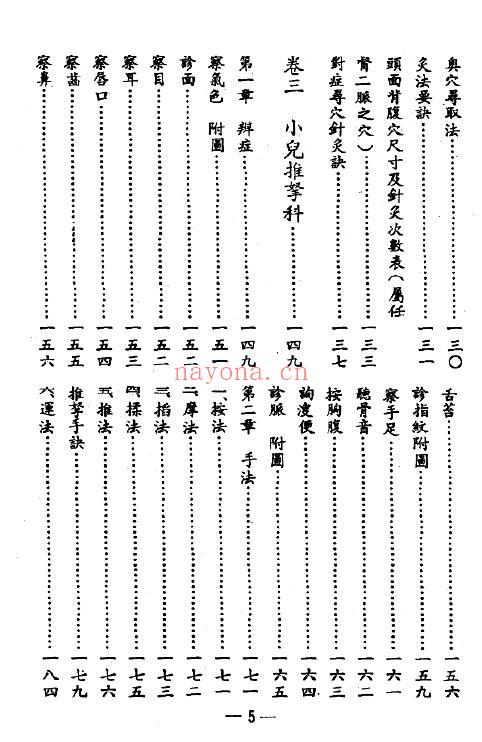 穴尋取法……一三〇
灸法要訣……一三一
頭面背腹穴尺寸及針灸次數表(屬任
督二脈之穴)……一三三
對症尋穴針灸訣……一三七
卷三 小兒推拏科……一四九
第一章 辨症……一四九
察氣色 附圖……一五一
診面……一五二
察目……一五二
察耳……一五三
察唇口……一五四
察齒……一五五
察鼻……一五六
舌苔……一五六
診指紋附圖……一五九
察手足……一六一
聽骨音……一六二
按胸腹……一六三
詢溲便……一六四
診脈 附圖……一六五
第二章 手法……一七一
一、按法……一七一
二、摩法……一七二
三、掐法……一七三
四、揉法……一七五
五、推法……一七六
推拏手訣……一七九
六、運法……一八四
— 5 —
nayona.cn